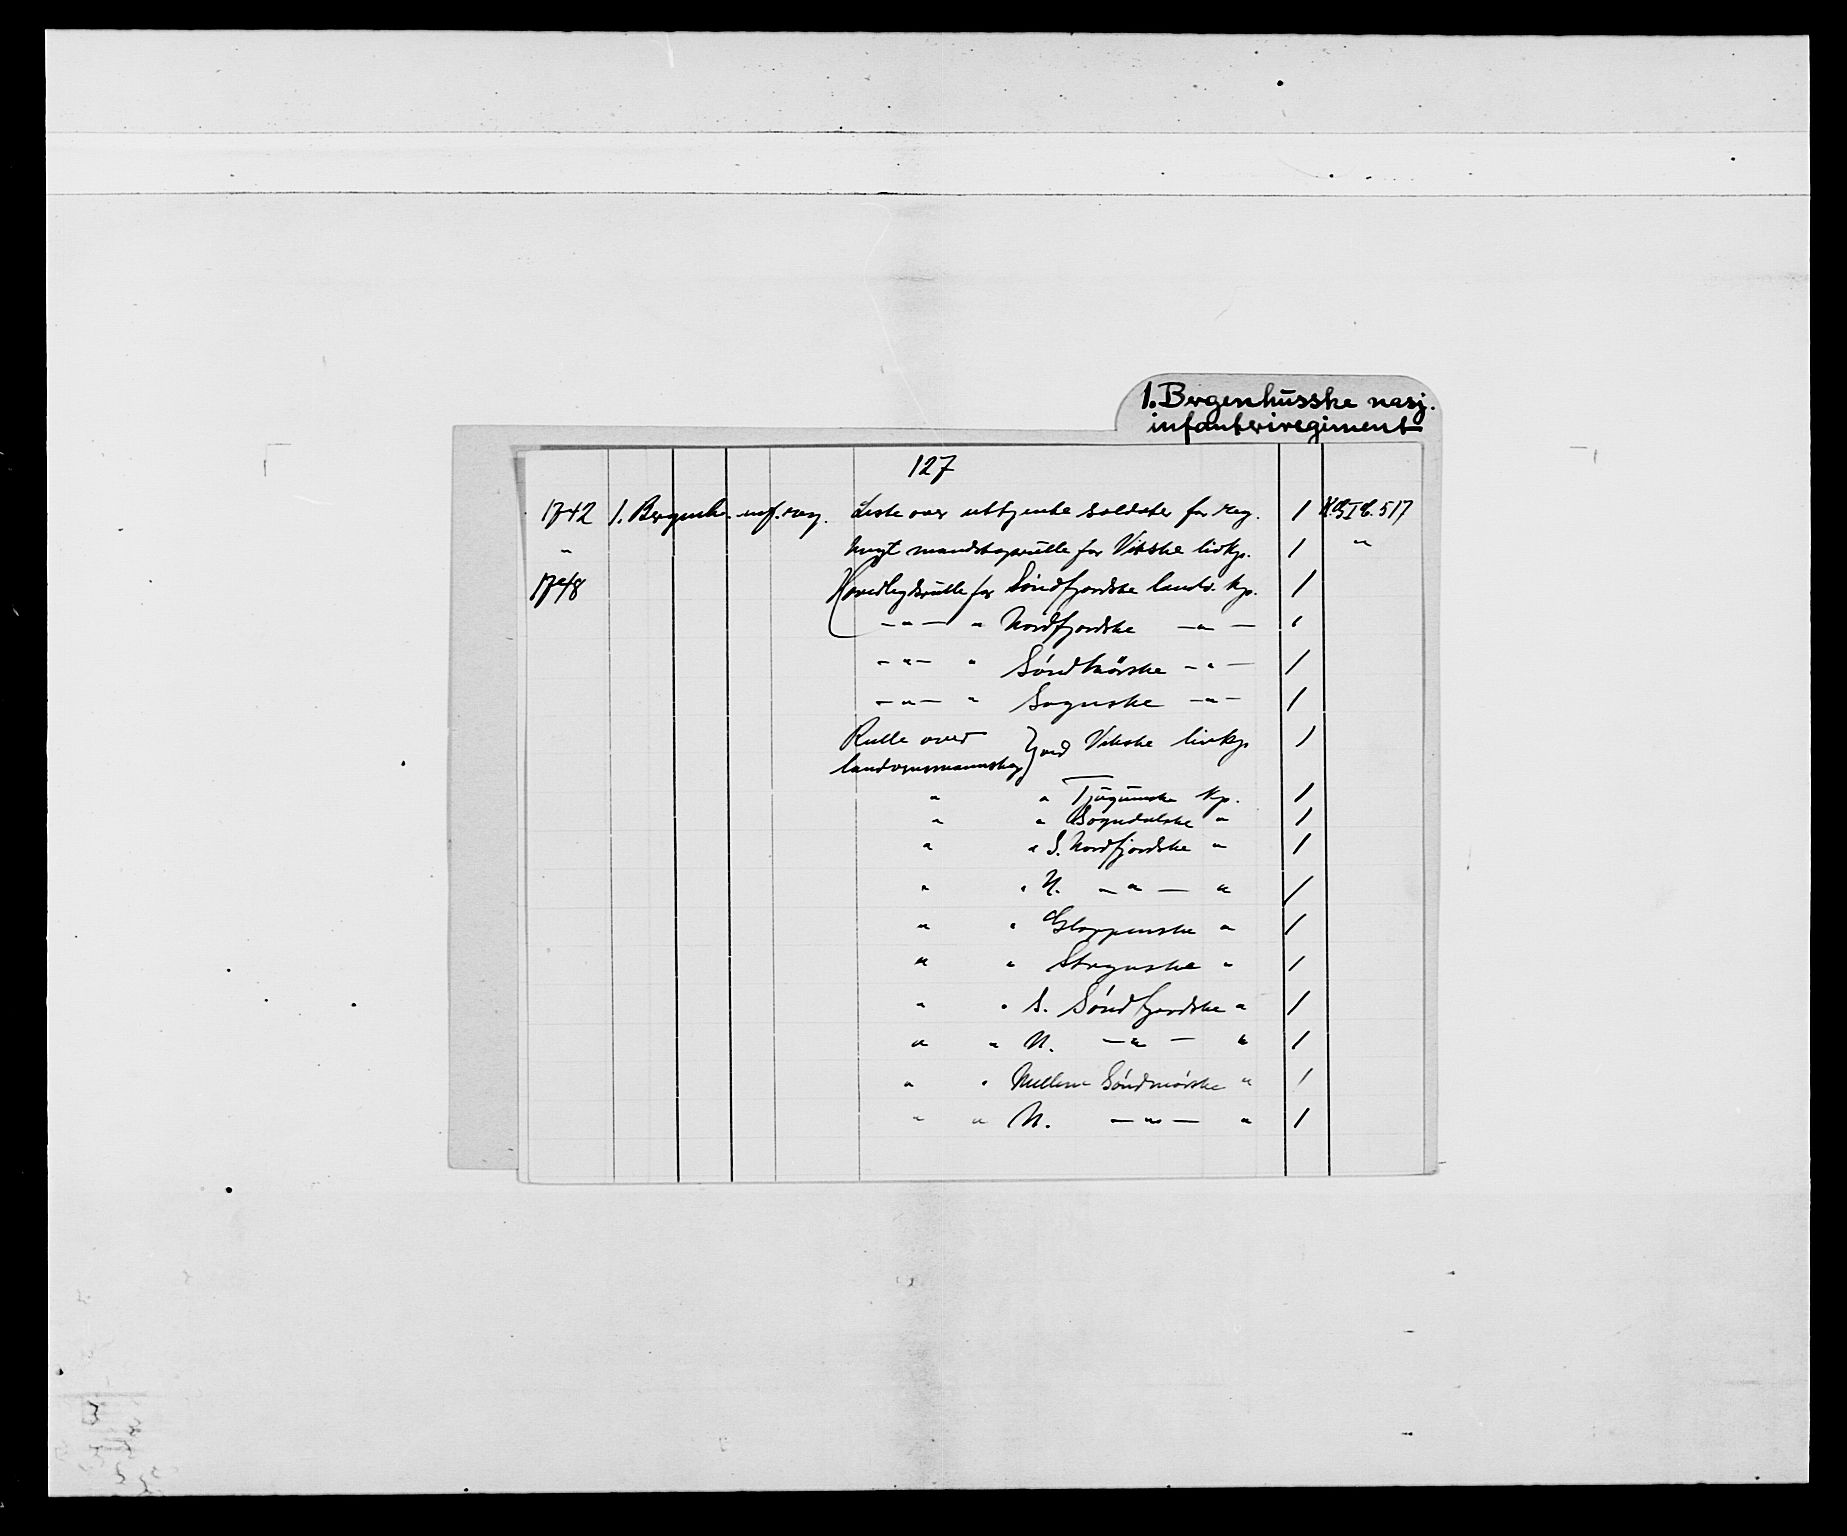 1. Bergenhusske nasj.
infanteriregiment
127
1742 1. Bergenh. inf. reg. Liste over uttjente soldater for reg. 1 517
" mandskapsrulle for Vikske livkp. 1 "
1748 Hovedlegdsrulle for Söndfjordske landv. kp. 1
— " — " Nordfjordske — " — 1
— " — " Söndmörske — " — 1
— " — " Sognske — " — 1
Rulle over } ved Vikske livkp 1
landvernsmannskap
" " Tjugumske kp. 1
" " Sogndalske " 1
" " S. Nordfjordske " 1
" " N. — " — " 1
" " Gloppenske " 1
" " Strynske " 1
" " S. Söndfjordske " 1
" " N. — " — " 1
" " Mellem Söndmörske " 1
" " N. — " — " 1